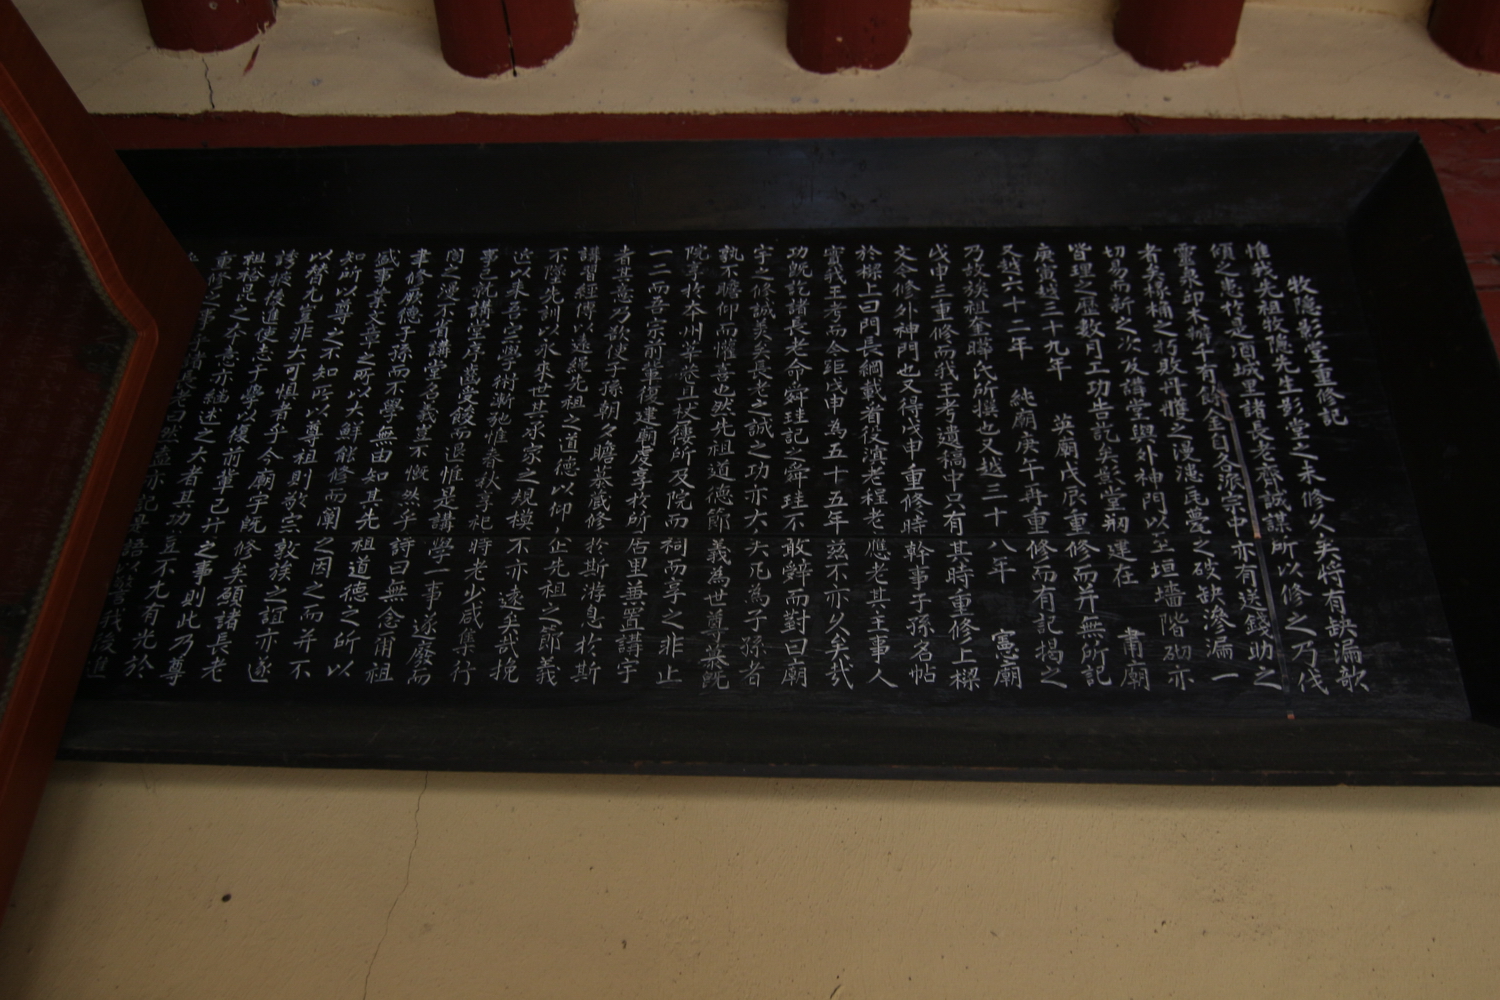 牧隱影堂重修記
惟我先祖牧隱先生影堂之未修久矣將有缺漏欹
傾之患於是酒城里諸長老齊誠謀所以修之乃伐
靈泉邱木辦千有餘金自各派宗中亦有送錢助之
者矣樑桷之朽敗丹雘之漫漶瓦甍之破缺滲漏一
切易而新之次及講堂與外神門以至垣墻階砌亦
皆理之歷數月工功告訖矣影堂刱建在 肅廟
庚寅越二十九年 英廟戊辰重修而幷無所記
又越六十二年 純廟庚午再重修而有記揭之
乃故族祖奎暐氏所撰也又越三十八年 憲廟
戊申三重修而我王考遺稿中只有其時重修上樑
文今修外神門也又得戊申重修時幹事子孫名帖
於樑上曰門長綱載首役演老程老應老其主事人
實我王考而今距戊申為五十五年茲不亦久矣哉
功旣訖諸長老命舜珪記之舜珪不敢辭而對曰廟
宇之修誠美矣長老之誠之功亦大矣凡為子孫者
孰不瞻仰而懽喜也然先祖道德節義為世尊慕旣
院享於本州莘巷且杖屨所及院而祠而享之非止
一二而吾宗前輩復建廟虔享於所居里兼置講宇
者其意乃欲使子孫朝夕瞻慕藏修於斯游息於斯
講習經傳以遠紹先祖之道德以仰企先祖之節義
不隳先訓以永來世其承家之規模不亦遠矣哉挽
近以來吾宗學術漸弛惟春秋享祀時老少咸集行
事已訖講堂序齒受餕而退惟是講學一事遂廢而
閣之漫不省講堂名義豈不慨然乎詩曰無念爾祖
聿修厥德子孫而不學無由知其先祖道德之所以
盛事業文章之所以大鮮能修而闡之因之而幷不
知所以尊之不知所以尊祖則敬宗敦族之誼亦遂
以替尤豈非大可惧者乎今廟宇旣修矣願諸長老
誘掖後進使志于學以復前輩已升之事則此乃尊
祖裕昆之本意亦繼述之大者其功豈不尤有光於